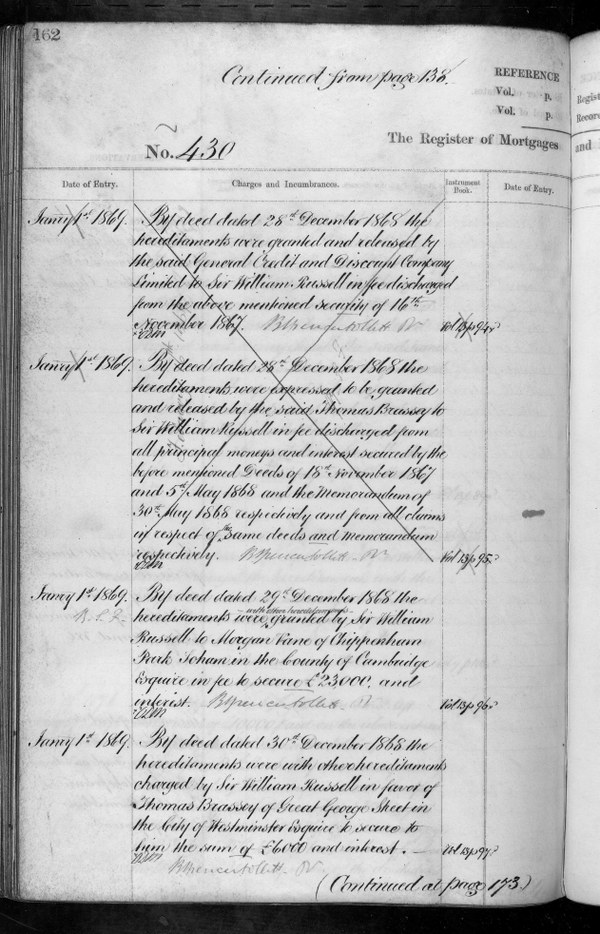 162
Continued from page 138.
REFERENCE
Vol. p.
Vol. p.
No. 430
The Register of Mortgages
and
Date of Entry.
Charges and Incumbrances.
Instrument Book.
Date of Entry.
Janry 1st 1869.
By deed dated 28th December 1868 the
hereditaments were granted and released by
the said General Credit and Discount Company
Limited to Sir William Russell in fee discharged
from the above mentioned security of 16th
November 1867.
Vol 13 p 94
Janry 1st 1869.
By deed dated 28th December 1868 the
hereditaments were expressed to be granted
and released by the said Thomas Brassey to
Sir William Russell in fee discharged from
all principal moneys and interest secured by the
before mentioned Deeds of 18th November 1867
and 5th May 1868 and the Memorandum of
30th May 1868 respectively and from all claims
in respect of the same deeds and memorandum
respectively.
Vol 13 p 95
Janry 1st 1869.
By deed dated 29th December 1868 the
hereditaments were with other hereditaments granted by Sir William
Russell to Morgan Vane of Chippenham
Park Soham in the County of Cambridge
Esquire in fee to secure £23,000. and
interest.
Vol 13 p 96
Janry 1st 1869.
By deed dated 30th December 1868 the
hereditaments were with other hereditaments
charged by Sir William Russell in favor of
Thomas Brassey of Great George Street in
the City of Westminster Esquire to secure to
him the sum of £6000 and interest.
Vol 13 p 97
(Continued at page 173)